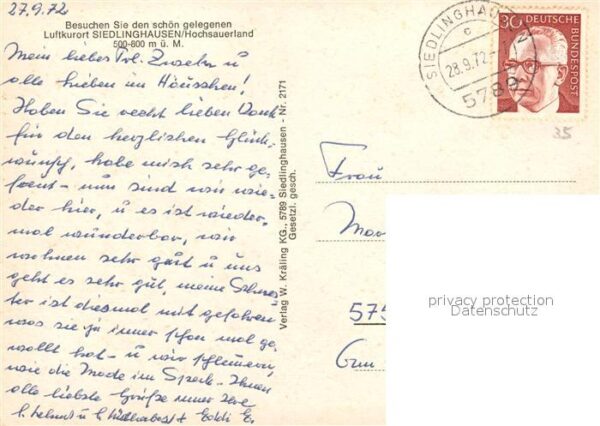 27.9.72
Besuchen Sie den schön gelegenen
Luftkurort SIEDLINGHAUSEN/Hochsauerland
500-800 m ü. M.
Mein liebes Frl. u
alle lieben im Häuschen!
Haben Sie recht lieben Dank
für den herzlichen Glück-
wunsch, habe mich sehr ge-
freut - nun sind wir wie-
der hier, u es ist wieder-
mal wunderbar, wir
wohnen sehr gut u uns
geht es sehr gut, meine Schwes-
ter ist diesmal mit gefahren
was sie ja immer schon mal ge-
wollt hat - u wir schlemmern,
wie die Made im Speck - Ihnen
alle liebste Grüße immer Ihre
Verlag W. Kräling KG., 5789 Siedlinghausen - Nr. 2171
Gesetzl. gesch.
SIEDLINGHAUSEN
c
28.9.72
5789
30
DEUTSCHE
BUNDESPOST
35
Frau
575
privacy protection
Datenschutz